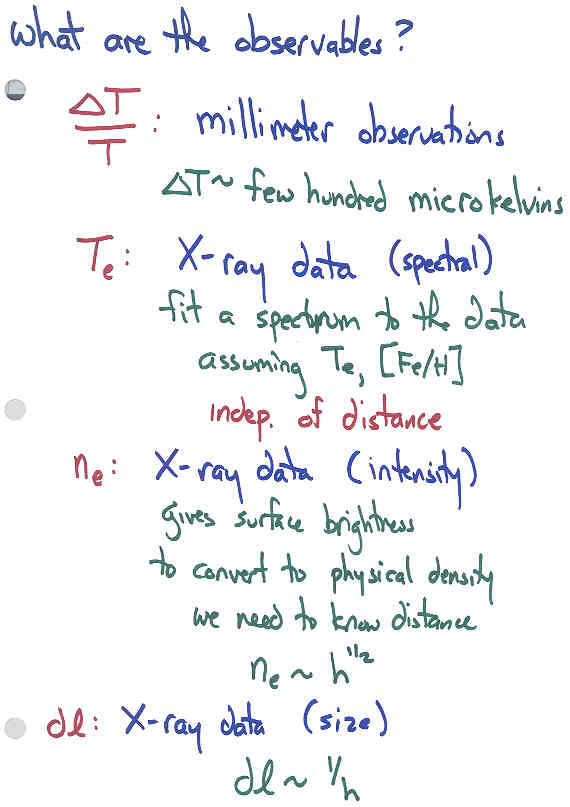 What are the observables?
ΔT/T : millimeter observations
ΔT ~ few hundred microkelvins
Te: X-ray data (spectral)
fit a spectrum to the data
assuming Te, [Fe/H]
indep. of distance
ne: X-ray data (intensity)
gives surface brightness
to convert to physical density
we need to know distance
ne ~ h^1/2
dl: X-ray data (size)
dl ~ 1/h